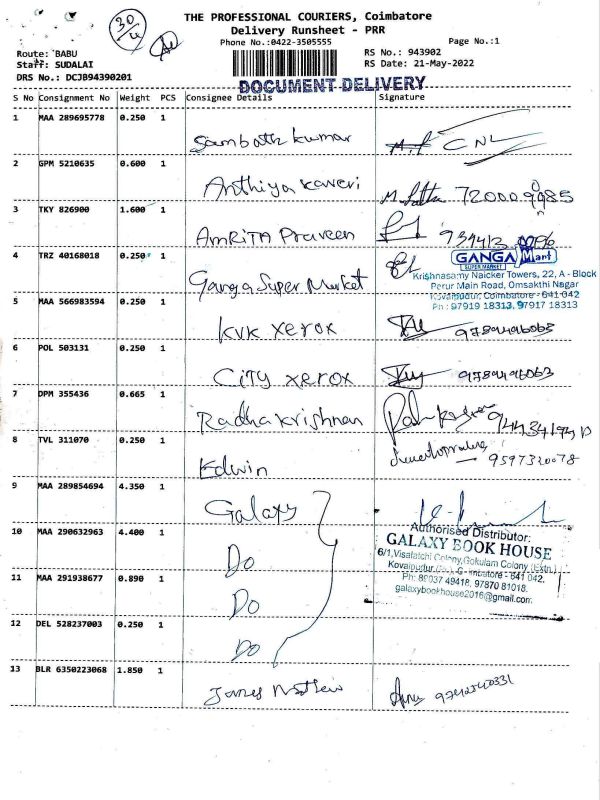 30/4
THE PROFESSIONAL COURIERS, Coimbatore
Delivery Runsheet - PRR
Phone No.:0422-3505555 Page No.:1
Route: BABU RS No.: 943902
Staff: SUDALAI RS Date: 21-May-2022
DRS No.: DCJB94390201
DOCUMENT DELIVERY
S No Consignment No Weight PCS Consignee Details Signature
1 MAA 289695778 0.250 1 Sambath kumar CNL
2 GPM 5210635 0.600 1 Anthiya kaveri
3 TKY 826900 1.600 1 AMRITA Praveen
4 TRZ 40168018 0.250 1 Ganga Super Market
GANGA Mart
SUPER MARKET
Krishnasamy Naicker Towers, 22, A - Block
Perur Main Road, Omsakthi Nagar
Kovaipudur, Coimbatore - 641 042
Ph : 97919 18313, 97917 18313
5 MAA 566983594 0.250 1 KVK xerox 9789496063
6 POL 503131 0.250 1 CITY xerox 9789496063
7 DPM 355436 0.665 1 Radha Krishnan
8 TVL 311070 0.250 1 Edwin 9597320078
9 MAA 289854694 4.350 1 Galaxy
10 MAA 290632963 4.400 1 Do
Authorised Distributor:
GALAXY BOOK HOUSE
6/1, Visalatchi Colony, Gokulam Colony (Extn.)
Kovaipudur, Coimbatore - 641 042.
Ph: 89037 49418, 97870 81018.
galaxybookhouse2016@gmail.com
11 MAA 291938677 0.890 1 Do
12 DEL 528237003 0.250 1 Do
13 BLR 6350223068 1.850 1 James Mathew